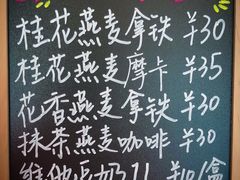 桂花燕麦拿铁 ¥30
桂花燕麦摩卡 ¥35
花香燕麦拿铁 ¥30
抹茶燕麦咖啡 ¥30
维他奶 ¥10/盒